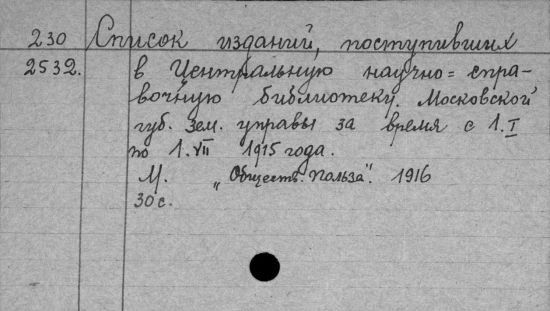 230 Список изданий, поступивших
2532. в Центральную научно=спра-
вочную библиотеку. Московской
губ. зем. управы за время с 1.I
по 1.VII 1915 года.
М. „Обществ. польза". 1916
30 с.